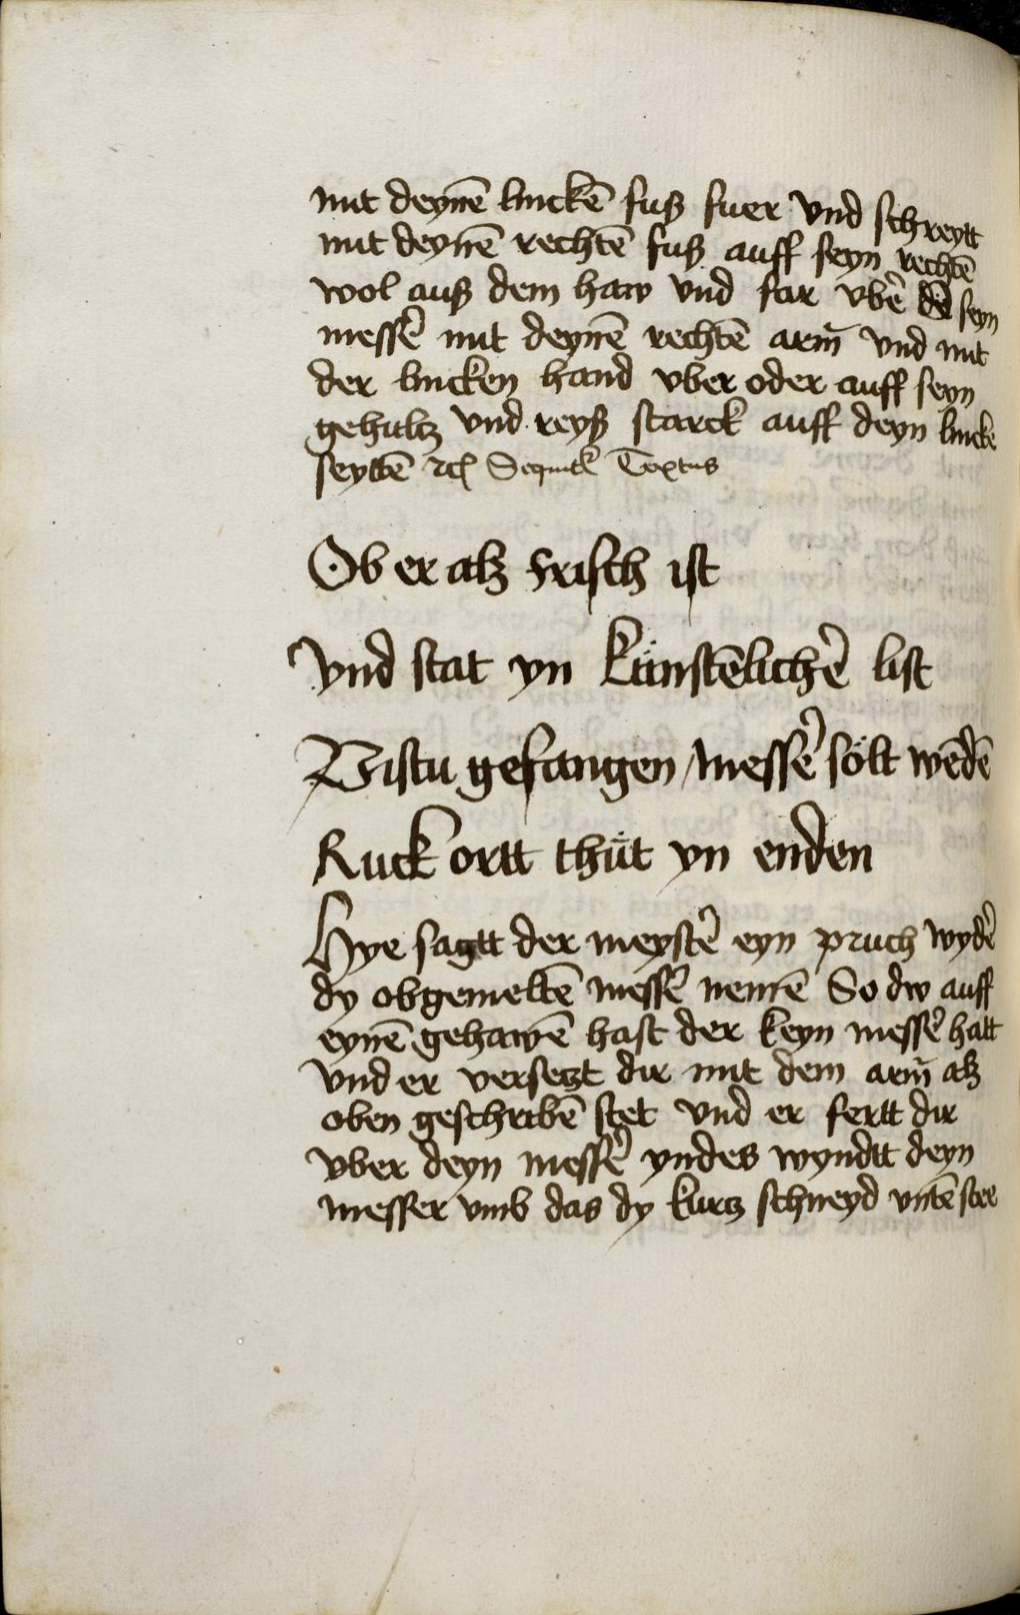 mit deynē linckē fuß fuer vnd schreytt
mit deynē rechtē fuß auff seyn rechtē
wol auß dem haw vnd far vbẽ seyn
messẽ mit deynē rechtē arm̄ vnd mit
der lincken hand vber oder auff seyn
gehultz vnd reyß starck auff deyn lincke
seyttē ⁊c̃ Sequitr̃ Textus
Ob er alß frisch ist
Vnd stat yn künstēlichẽ list
Bistu gefangen messẽ sölt wēdē
Ruck ortt thüt yn enden
Hye sagtt der meystẽ eyn pruch wydẽ
dy obgemeltē messẽ nemē So dw auff
eynē gehawē hast der keyn messẽ hatt
vnd er versetzt dir mit dem arm̄ alß
oben geschribē stet vnd er fertt dir
vber deyn messẽ yndes wyndtt deyn
messer vmb das dy kurtz schneyd vntē stee